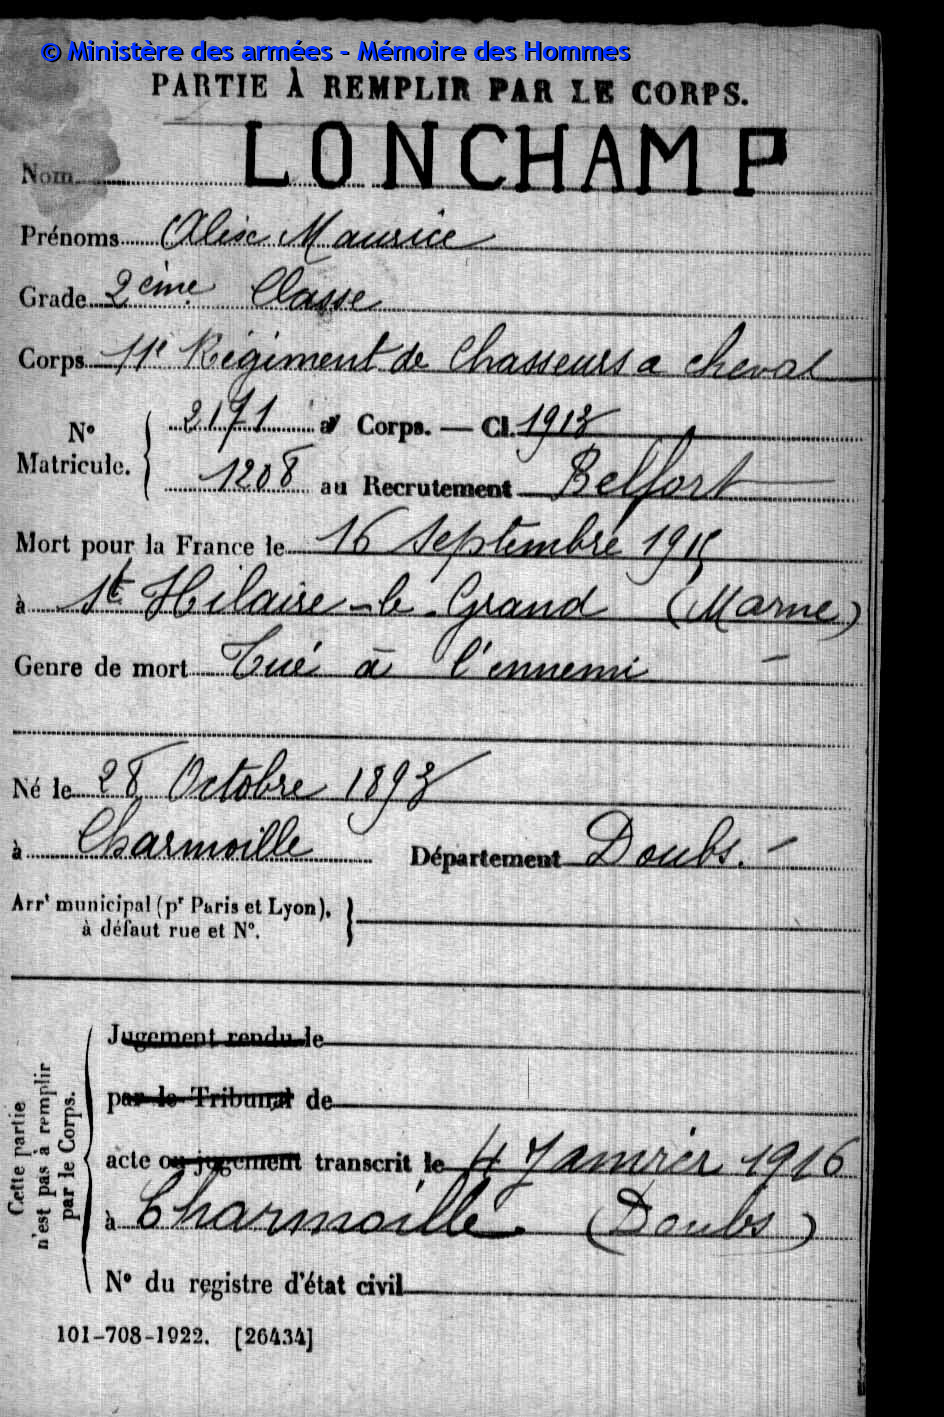 © Ministère des armées - Mémoire des Hommes
PARTIE À REMPLIR PAR LE CORPS.
Nom LONCHAMP
Prénoms Alix Maurice
Grade 2ème Classe
Corps 11e Régiment de Chasseurs a cheval
N° Matricule. { 2171 au Corps. — Cl. 1913
1208 au Recrutement Belfort
Mort pour la France le 16 Septembre 1915
à St Hilaire-le-Grand (Marne)
Genre de mort Tué à l'ennemi -
Né le 28 Octobre 1893
à Charmoille Département Doubs. -
Arrt municipal (pr Paris et Lyon), }
à défaut rue et N°.
Cette partie n'est pas à remplir par le Corps.
Jugement rendu le
par le Tribunal de
acte ou jugement transcrit le 4 Janvier 1916
à Charmoille. (Doubs)
N° du registre d'état civil
101-708-1922. [26434]